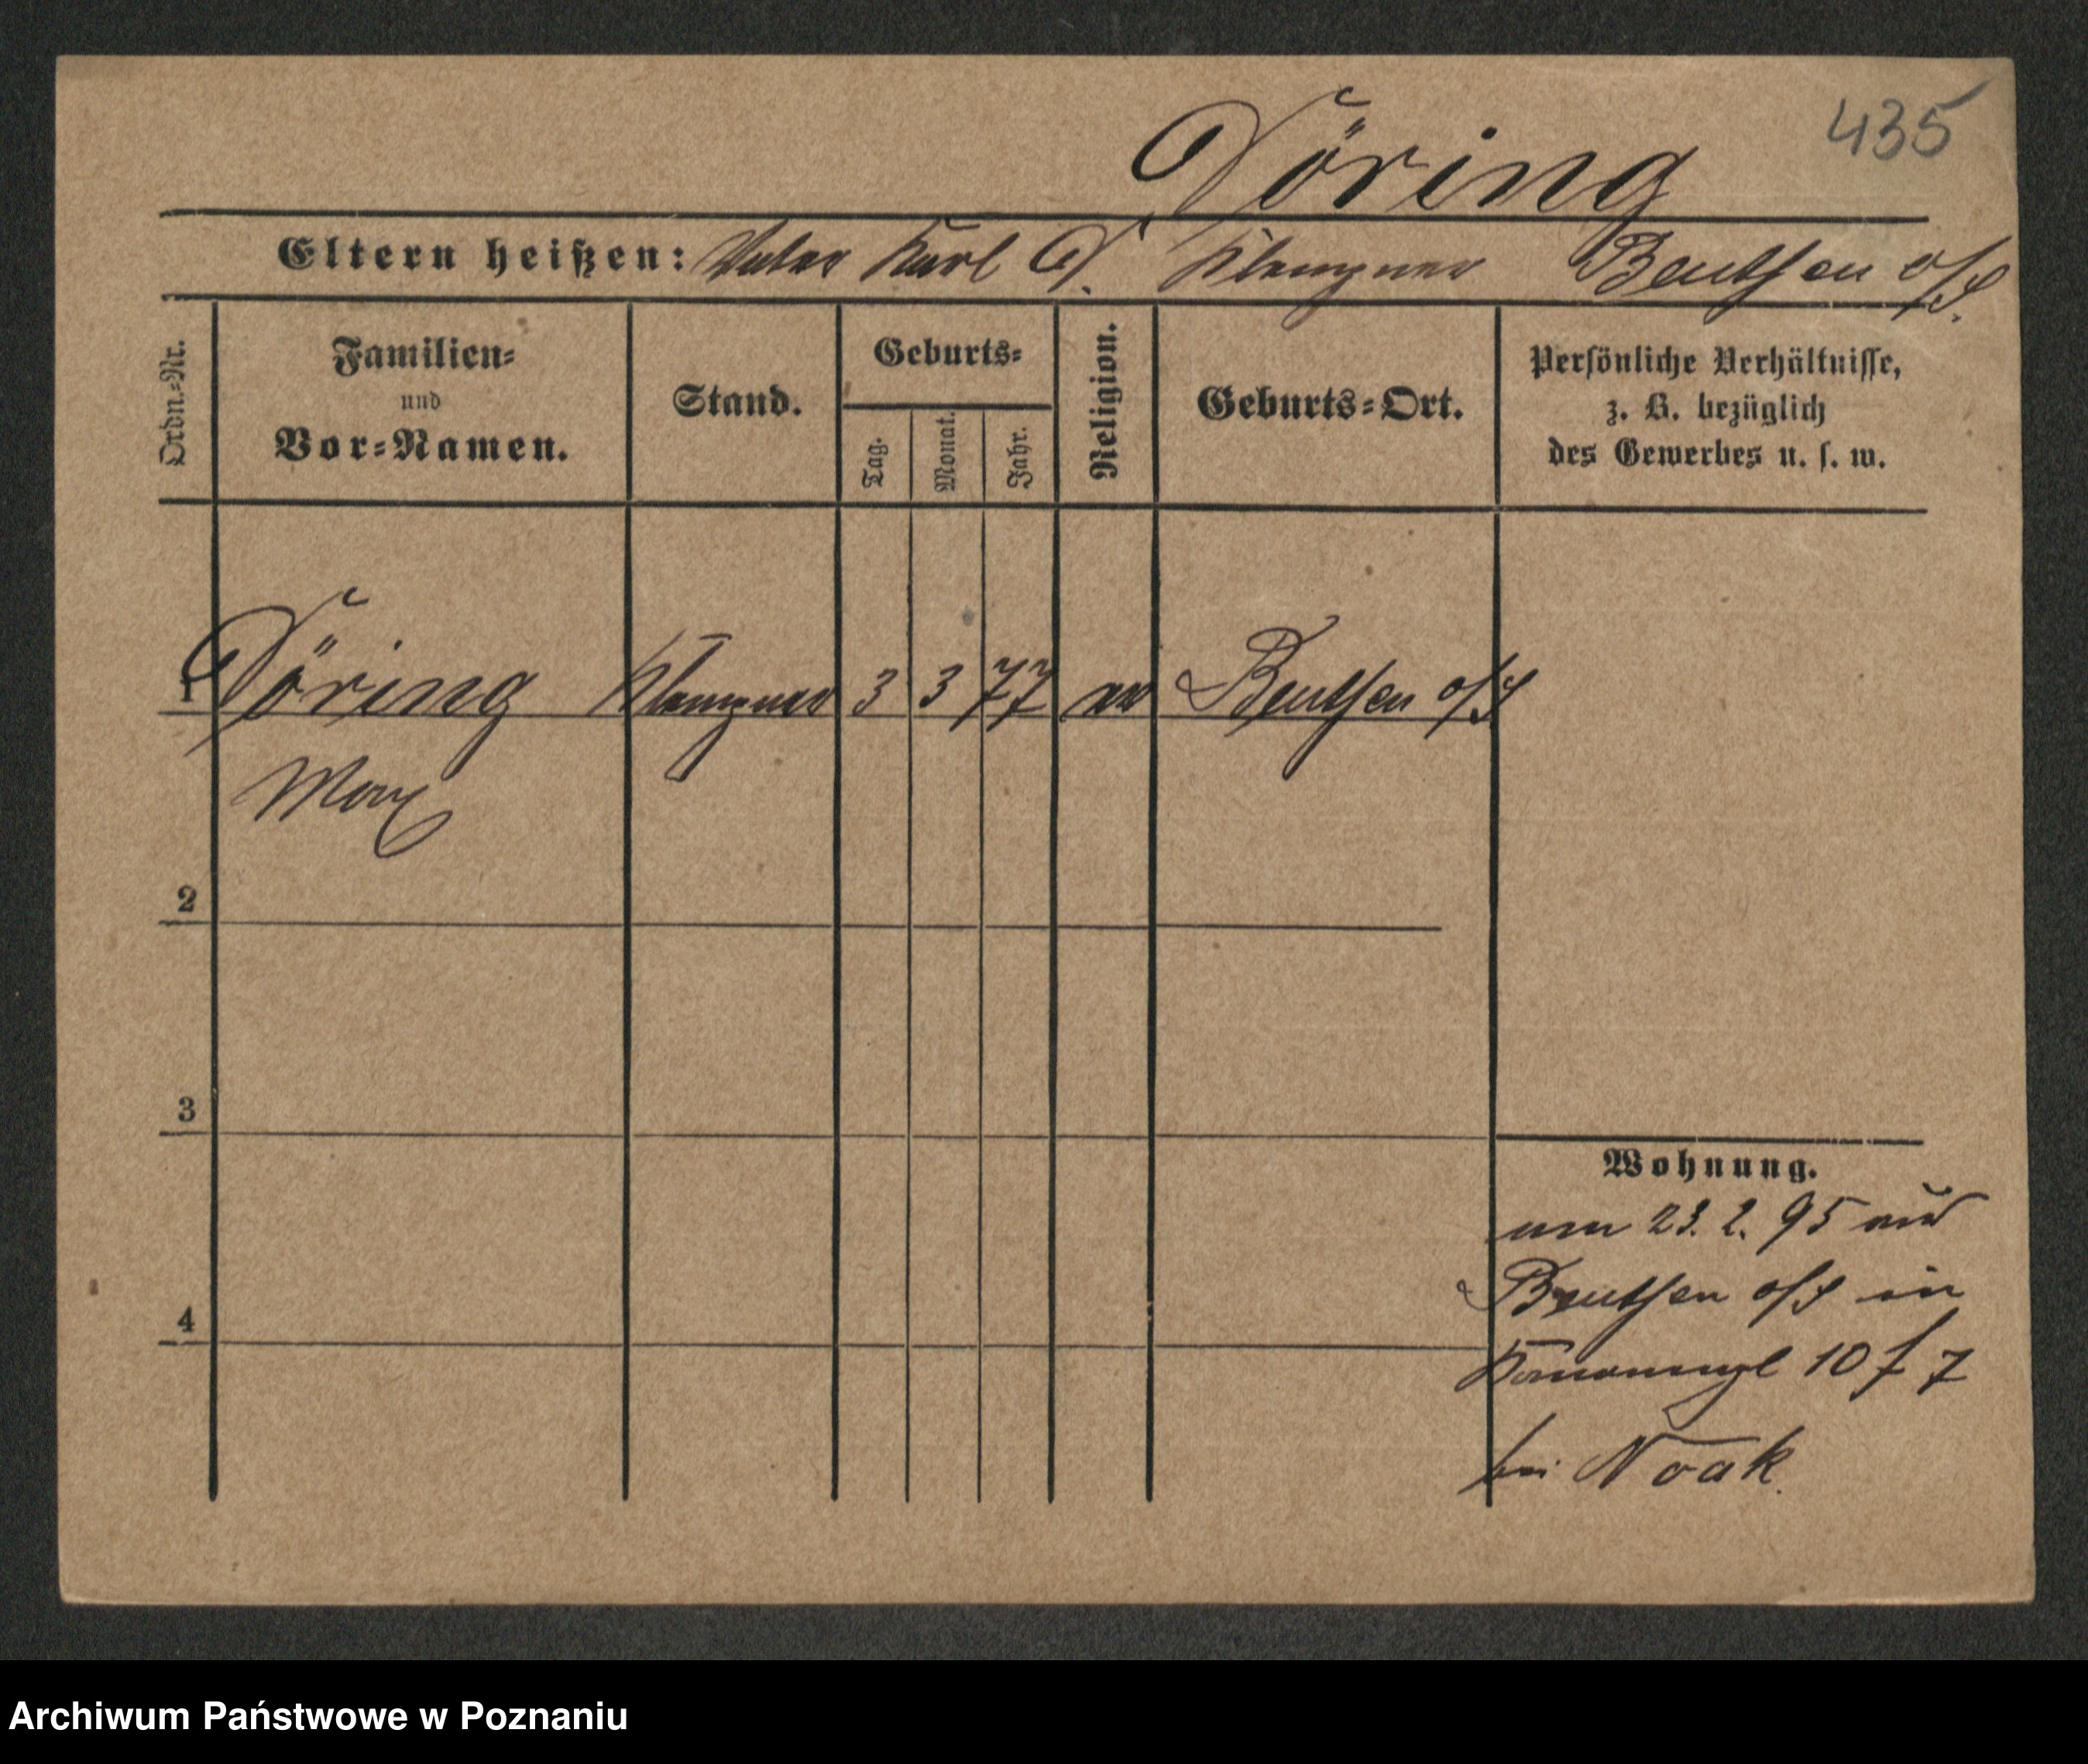 435
Döring
Eltern heißen: Vater Karl D. Klempner Beuthen o/S.
Ordn.-Nr.
Familien-
und
Vor-Namen.
Stand.
Geburts-
Tag.
Monat.
Jahr.
Religion.
Geburts-Ort.
Persönliche Verhältnisse,
z. B. bezüglich
des Gewerbes u. s. w.
1 Döring Klempner 3 3 77 ev Beuthen o/S
Max
2
3
4
Wohnung.
am 23. 2. 95 aus
Beuthen o/S in
10 f 7
bei Noak.
Archiwum Państwowe w Poznaniu